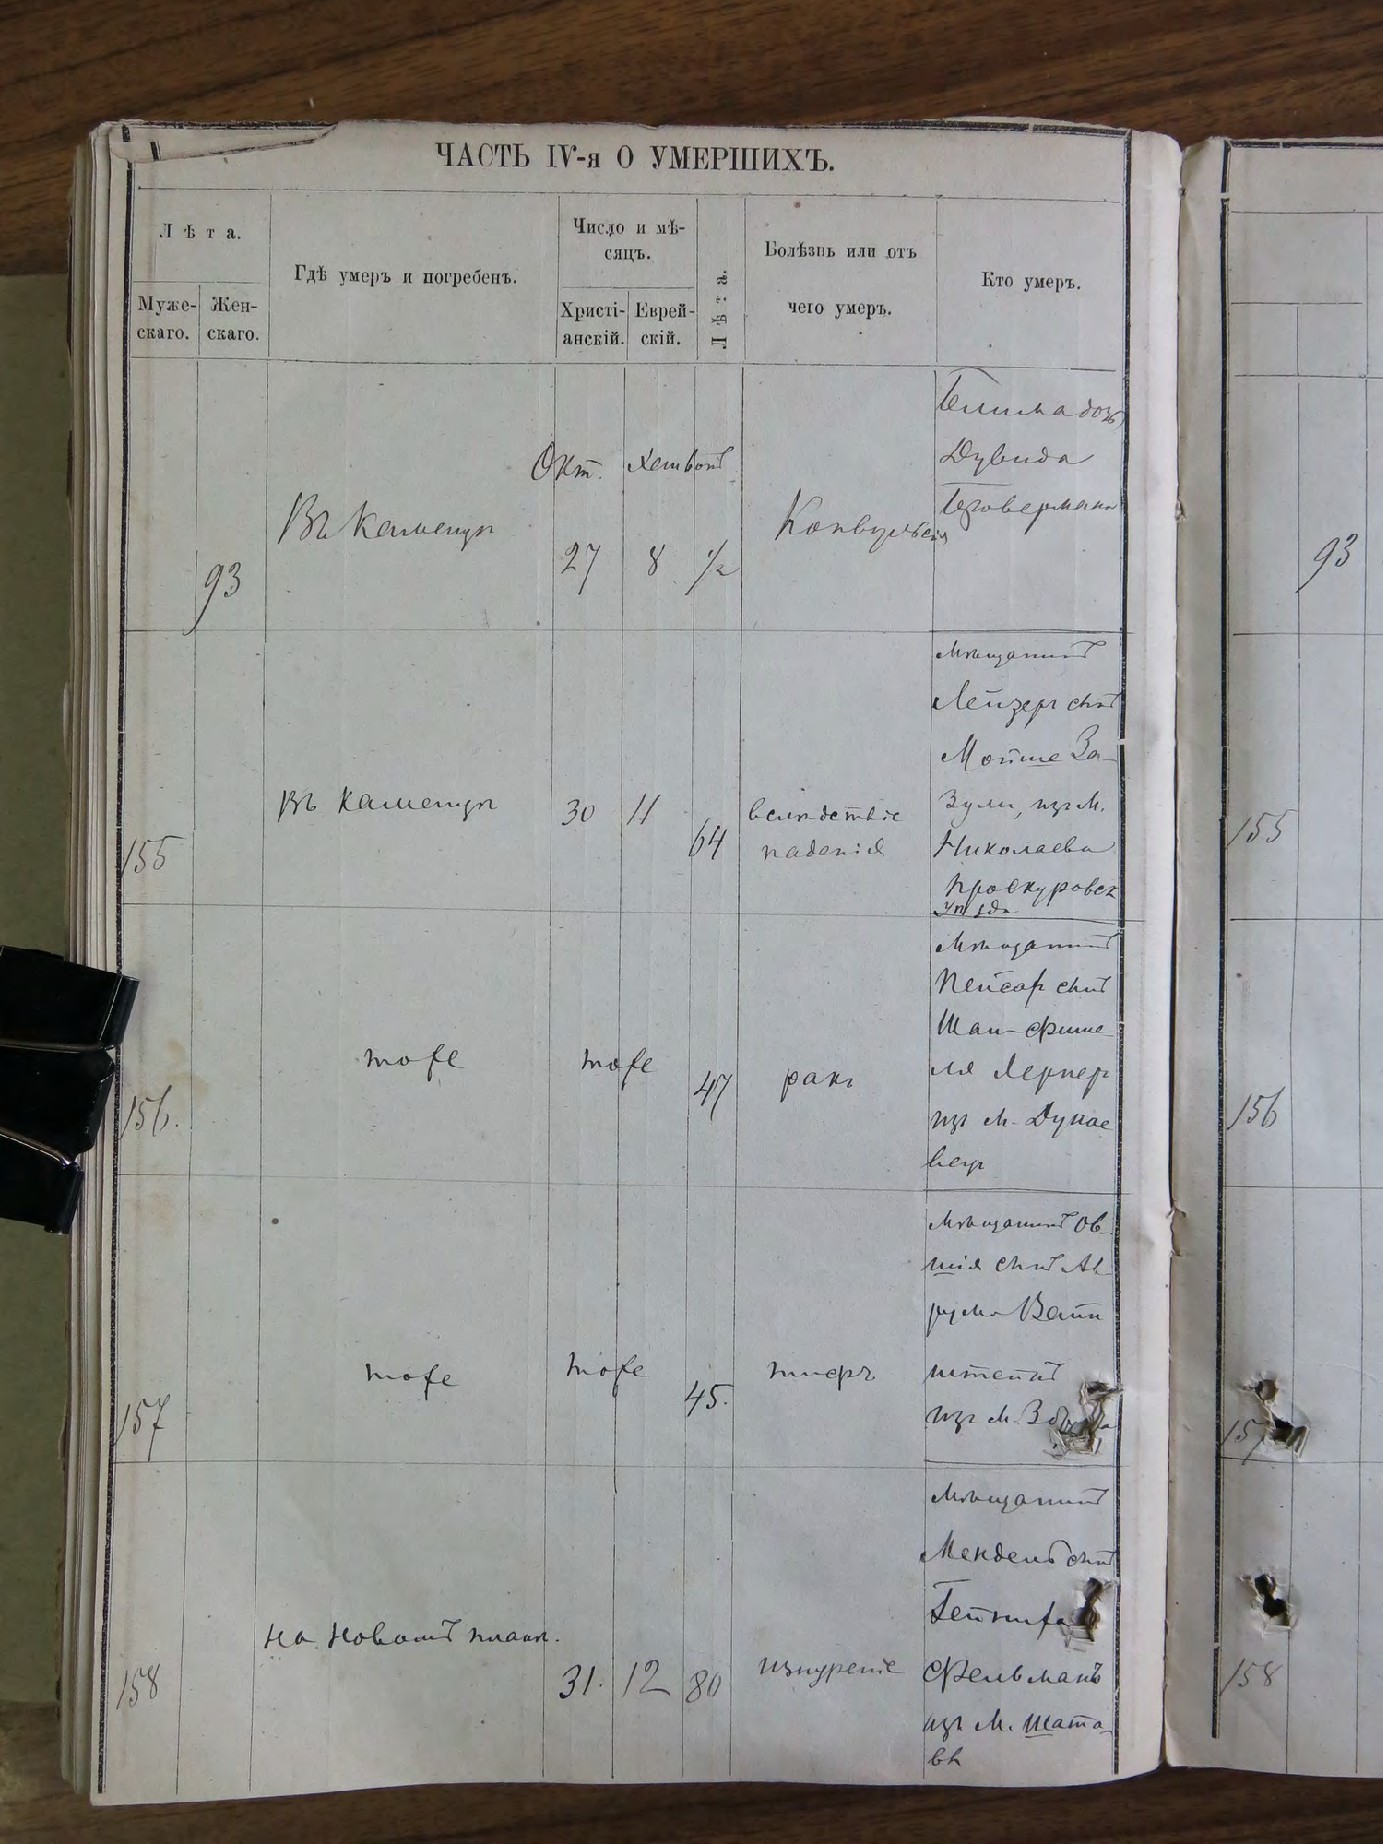 ЧАСТЬ IV-я О УМЕРШИХЪ.
Лѣта.
Муже-
скаго.
Жен-
скаго.
Гдѣ умеръ и погребенъ.
Число и мѣ-
сяцъ.
Христі-
анскій.
Еврей-
скій.
Лѣта.
Болѣзнь или отъ
чего умеръ.
Кто умеръ.
93
Въ Каменцѣ
Окт.
27
8
1/2
Конвульсія
дочь
Дувида
93
155
Въ Каменцѣ
30
11
64
вслѣдствіе
паденія
Мѣщанинъ
Лейзеръ сынъ
Мойше За-
зули, изъ м.
Николаева
Проскуровск
уѣзда
155
156.
тоже
тоже
47
ракъ
Мѣщанинъ
Пейсах сынъ
Шаи-Фише-
ля Лернер
изъ м. Дунае
вец
156
157
тоже
тоже
45.
тифъ
Мѣщанинъ Ов
шія сынъ Ав
рума Вайн
штейнъ
изъ м.
157
158
на Новомъ план.
31.
12
80
изнуреніе
Мѣщанинъ
Мендель сынъ
Фельманъ
изъ м. Шата-
вы
158